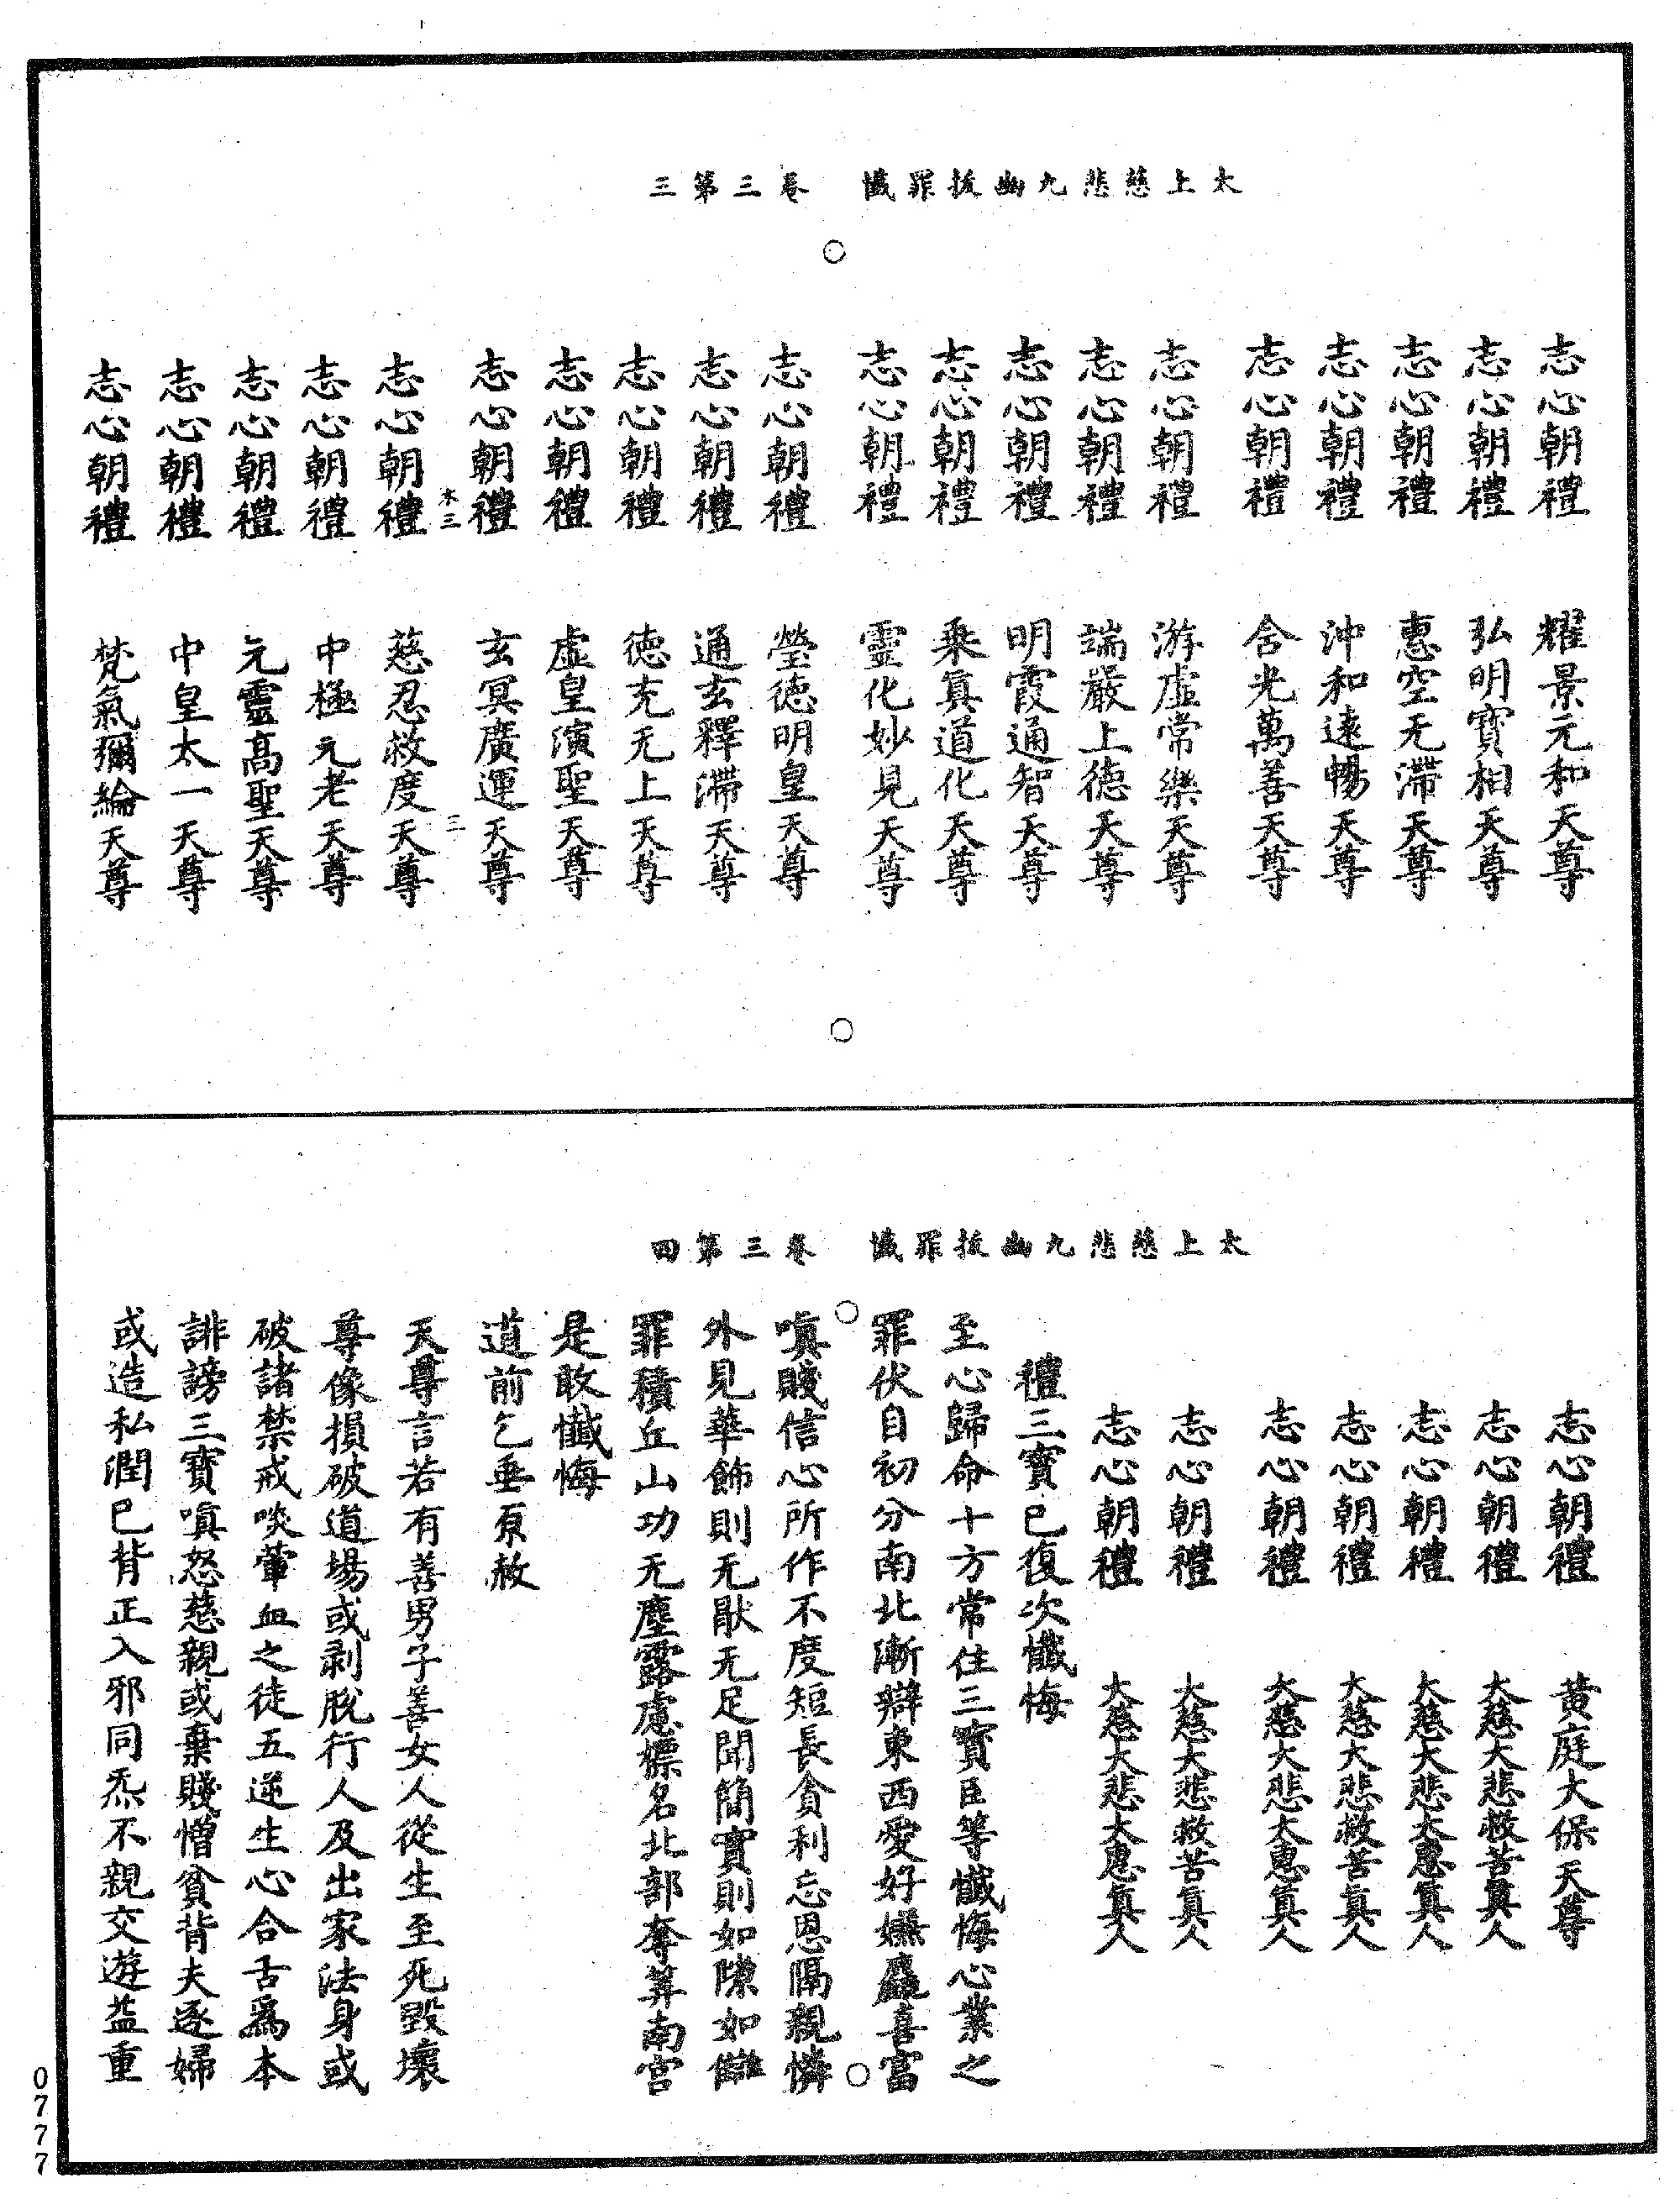 太上慈悲九幽拔罪懺　卷三第三
志心朝禮　耀景元和天尊
志心朝禮　弘明寶相天尊
志心朝禮　惠空无滯天尊
志心朝禮　沖和遠暢天尊
志心朝禮　含光萬善天尊
志心朝禮　游虛常樂天尊
志心朝禮　端嚴上德天尊
志心朝禮　明霞通智天尊
志心朝禮　乘真道化天尊
志心朝禮　靈化妙見天尊
志心朝禮　瑩德明皇天尊
志心朝禮　通玄釋滯天尊
志心朝禮　德充无上天尊
志心朝禮　虛皇演聖天尊
志心朝禮　玄冥廣運天尊
木三　三
志心朝禮　慈忍救度天尊
志心朝禮　中極元老天尊
志心朝禮　元靈高聖天尊
志心朝禮　中皇太一天尊
志心朝禮　梵氣彌綸天尊
太上慈悲九幽拔罪懺　卷三第四
志心朝禮　黃庭大保天尊
志心朝禮　大慈大悲救苦真人
志心朝禮　大慈大悲大惠真人
志心朝禮　大慈大悲救苦真人
志心朝禮　大慈大悲大惠真人
志心朝禮　大慈大悲救苦真人
志心朝禮　大慈大悲大惠真人
禮三寶已復次懺悔
至心歸命十方常住三寶臣等懺悔心業之
罪伏自初分南北漸辯東西愛好嫌麤喜富
嗔賤信心所作不度短長貪利忘恩隔親憐
外見華飾則无猒无足聞簡實則如隙如讎
罪積丘山功无塵露慮標名北部奪筭南宮
是敢懺悔
道前乞垂原赦
天尊言若有善男子善女人從生至死毀壞
尊像損破道場或剥脫行人及出家法身或
破諸禁戒啖葷血之徒五逆生心合舌爲本
誹謗三寶嗔怒慈親或棄賤憎貧背夫逐婦
或造私潤已背正入邪同炁不親交遊益重
0777